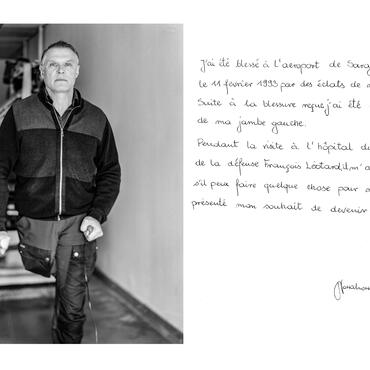 J'ai été blessé à l'aéroport de
le 11 février 1993 par des éclats de
Suite à la blessure reçue j'ai été
de ma jambe gauche.
Pendant la visite à l'hôpital du
de la défense François Léotard, il m'a
s'il peux faire quelque chose pour
présenté mon souhait de devenir